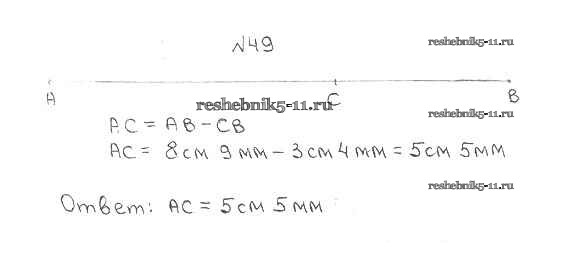 №49
reshebnik5-11.ru
A C B
reshebnik5-11.ru
reshebnik5-11.ru
AC = AB - CB
AC = 8см 9мм - 3см 4мм = 5см 5мм
reshebnik5-11.ru
Ответ: AC = 5см 5мм